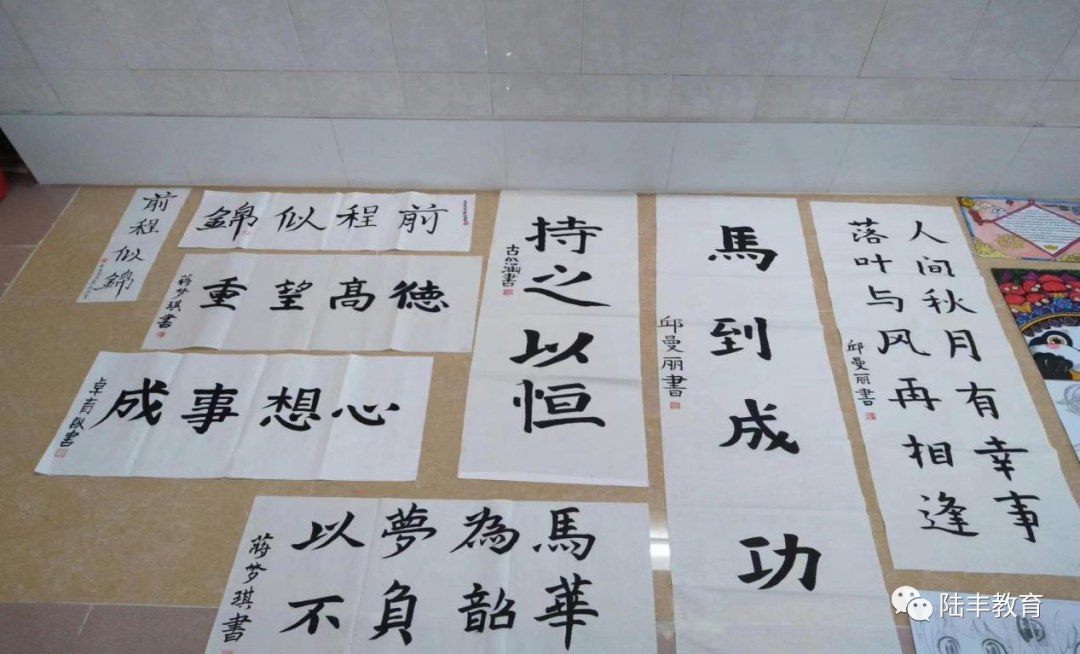 前程似錦
前程似錦
德高望重
蔣梦琪書
心想事成
持之以恒
馬到成功
邱曼丽書
人间秋月有幸事
落叶与风再相逢
邱曼丽書
以夢為馬
不負韶華
蔣梦琪書
陆丰教育